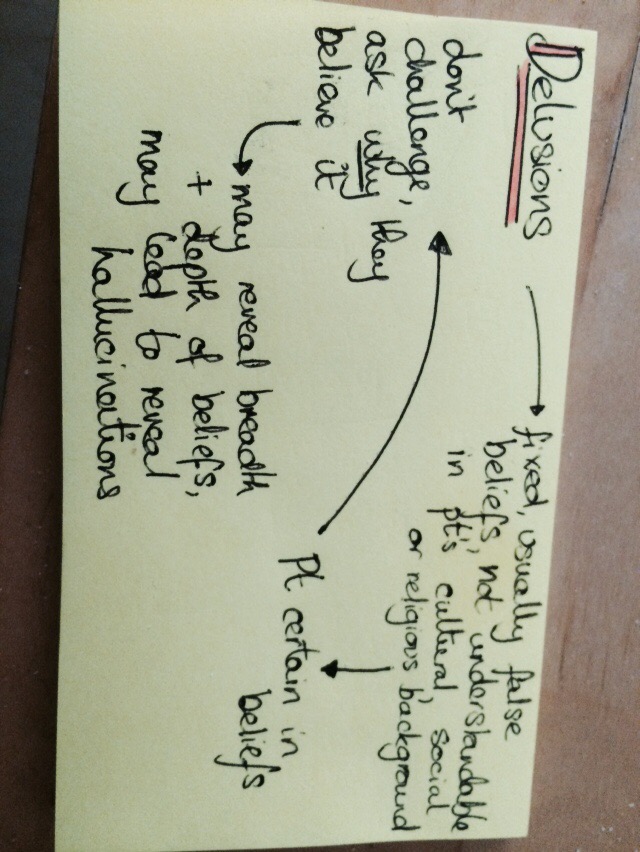 Delusions
fixed, usually false
beliefs, not understandable
in pt's cultural, social
or religious background
Pt certain in
beliefs
don't
challenge,
ask why they
believe it
may reveal breadth
+ depth of beliefs,
may lead to reveal
hallucinations